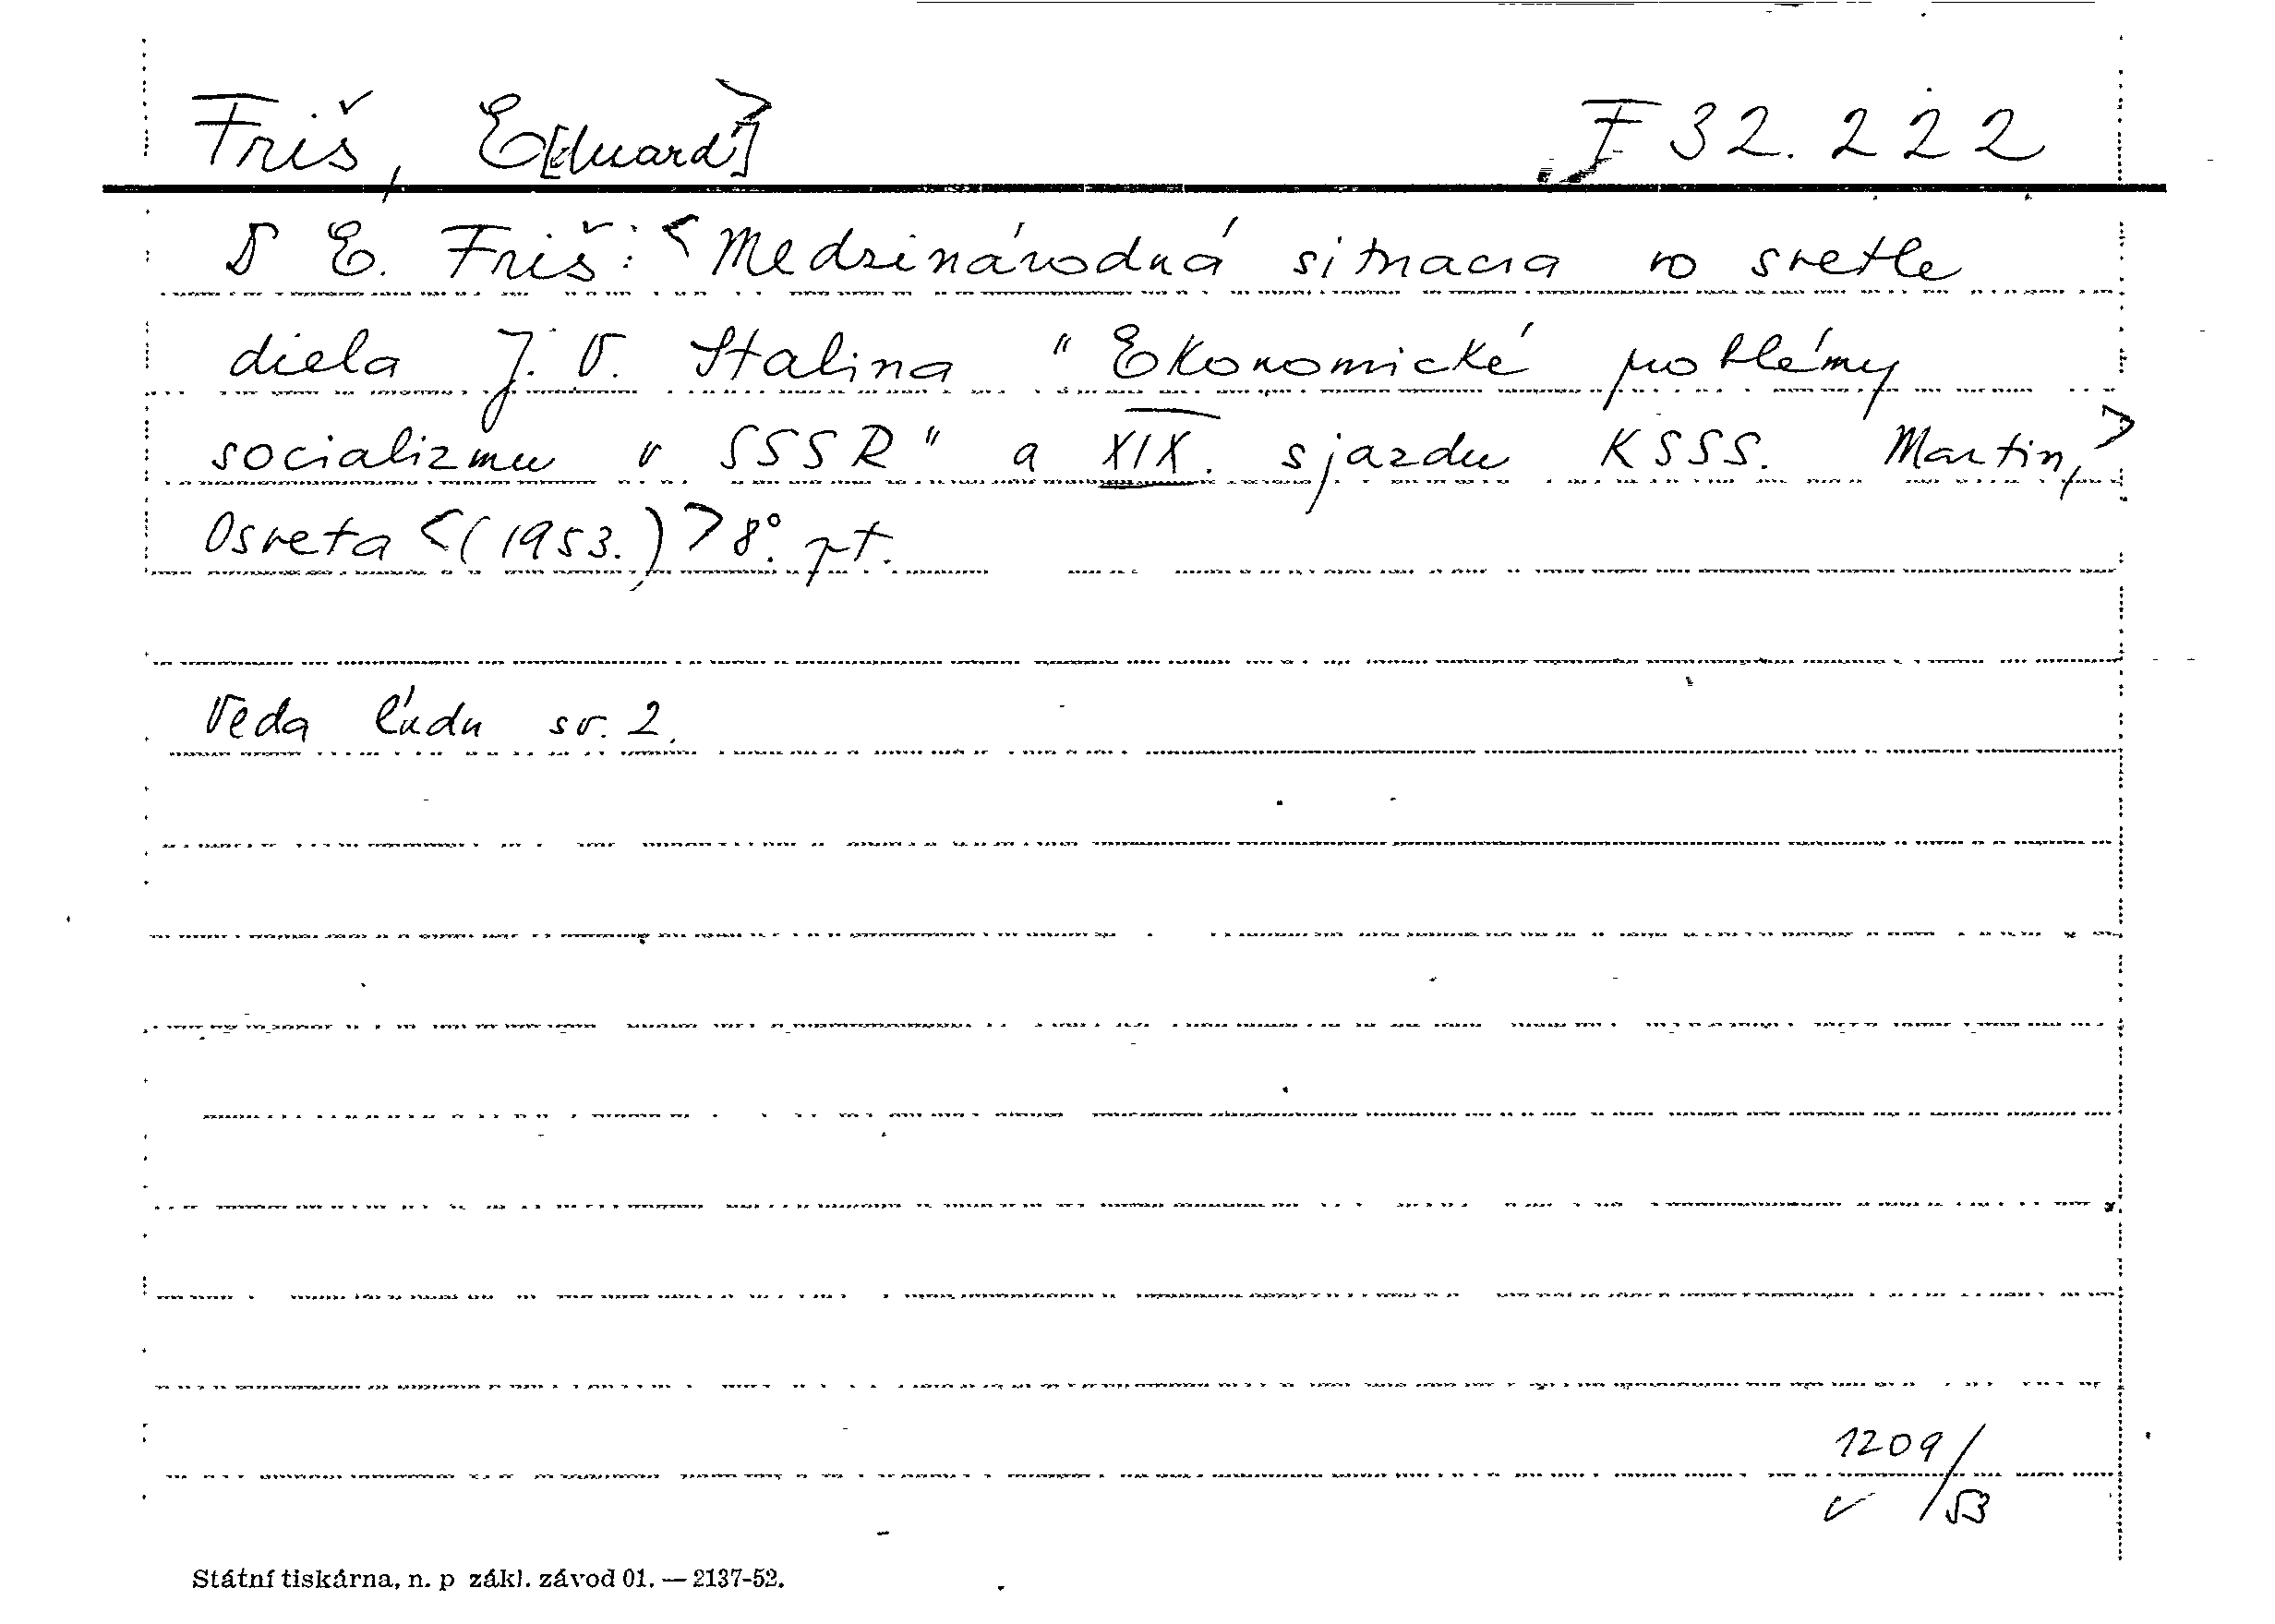 Friš, E[duard] F 32.222
E. Friš: <Medzinárodná situacia vo svetle
diela J. V. Stalina "Ekonomické problémy
socializmu v SSSR" a XIX. sjazdu KSSS. Martin,>
Osveta <(1953.)> 8°.
Veda ľudu sv. 2.
1209/
v /53
Státní tiskárna, n. p zákl. závod 01. — 2137-52.